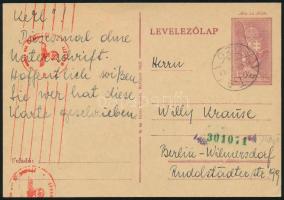 LEVELEZŐLAP
Kert!
Diesesmal ohne
Unterschrift.
Hoffentlich wissen
Sie wer hat diese
Karte geschrieben.
Herrn
Willy Krause
301071
Berlin-Wilmersdorf
Rudolstädterstr. 99
Feladó: